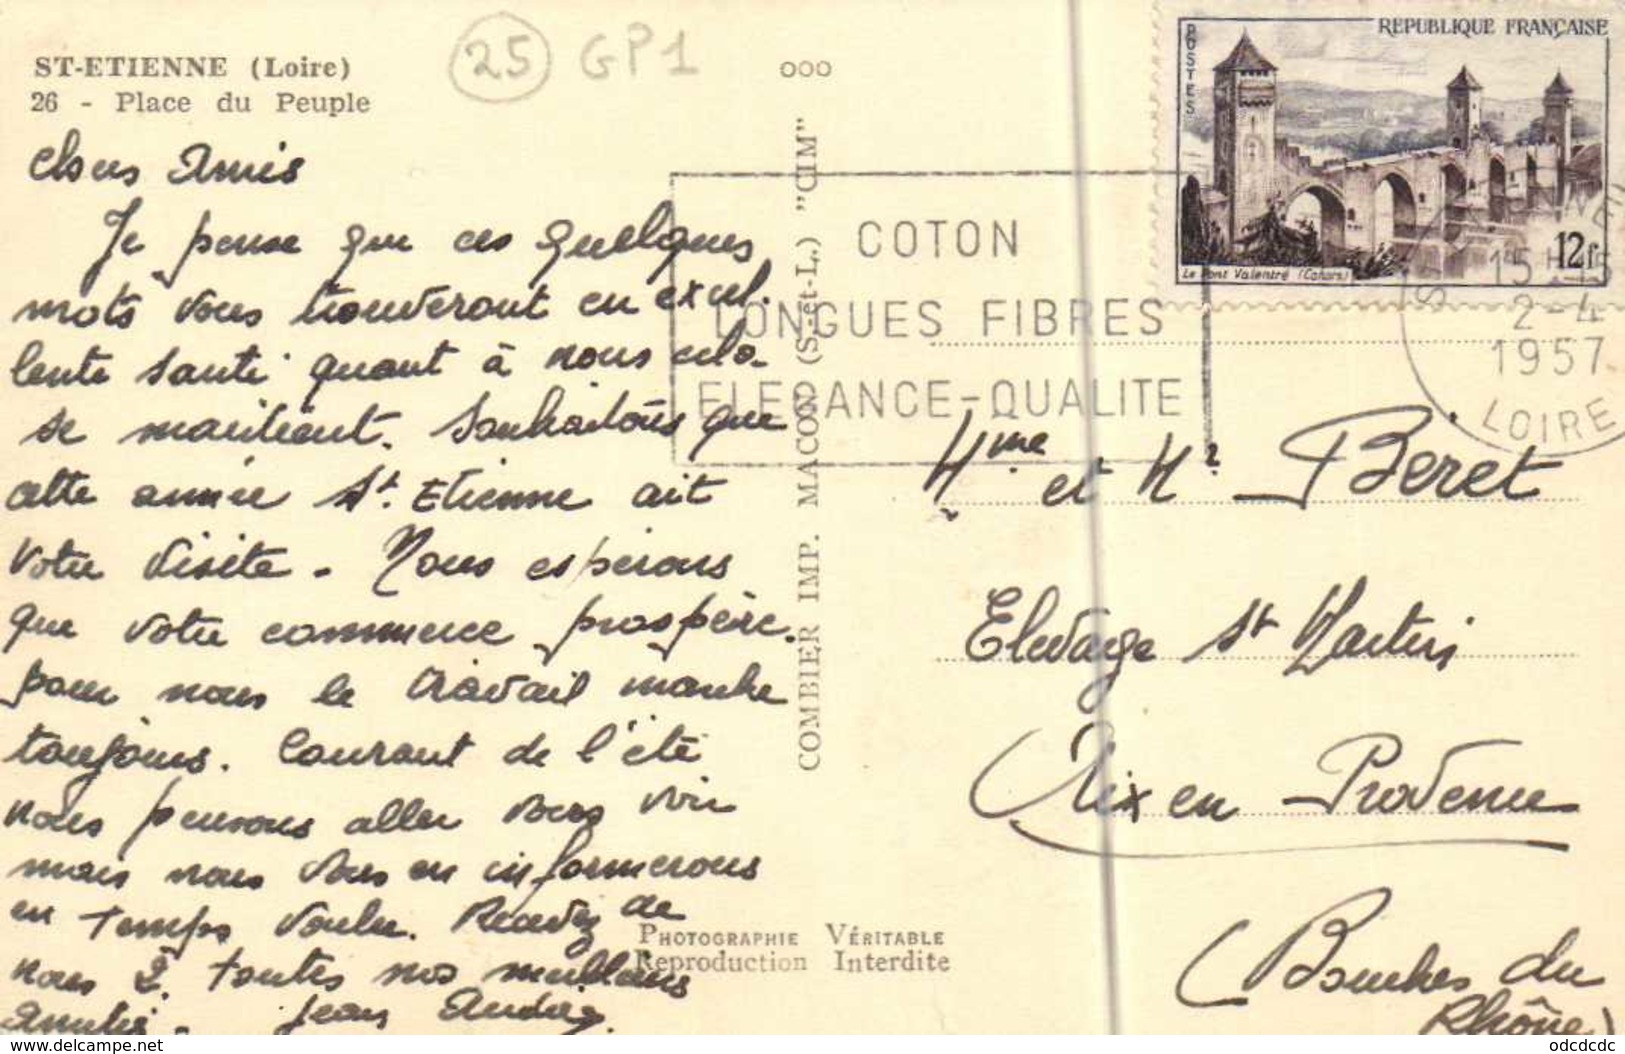 ST-ETIENNE (Loire)
26 - Place du Peuple
25 GP1
ooo
Chers Amis
Je pense que ces quelques
mots vous trouveront en excel-
lente santé quant à nous cela
se maintient. Souhaitons que
cette année St. Etienne ait
votre visite. Nous espérons
que votre commerce prospère.
pour nous le travail marche
toujours. Courant de l'été
nous pensons aller vous voir
mais nous vous en informerons
en temps voulu. Recevez de
nous 2. toutes nos meilleurs
amitiés. Jean
COMBIER IMP. MACON (S.-et-L.) "CIM"
COTON
LONGUES FIBRES
ELEGANCE-QUALITE
REPUBLIQUE FRANÇAISE
POSTES
Le Pont Valentré (Cahors)
12f
15 H
2-4
1957
LOIRE
Mme et Mr Béret
Elevage St Martin
Aix en Provence
(Bouches du
Rhône)
PHOTOGRAPHIE VÉRITABLE
Reproduction Interdite
delcampe.net
odcdcdc